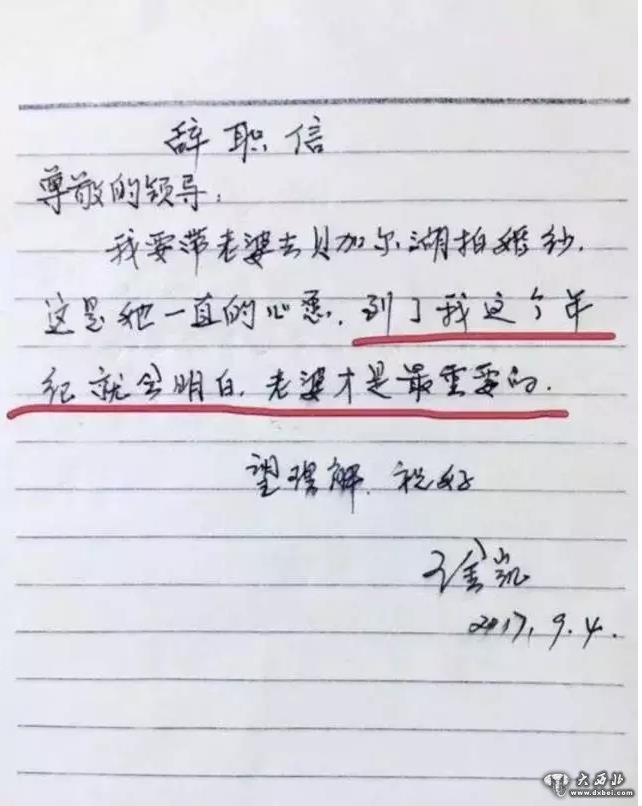 辞职信
尊敬的领导：
我要带老婆去贝加尔湖拍婚纱.
这是她一直的心愿.到了我这个年
纪就会明白.老婆才是最重要的.
望理解.祝好
凯
2017.9.4.
大西北
www.dxbei.com